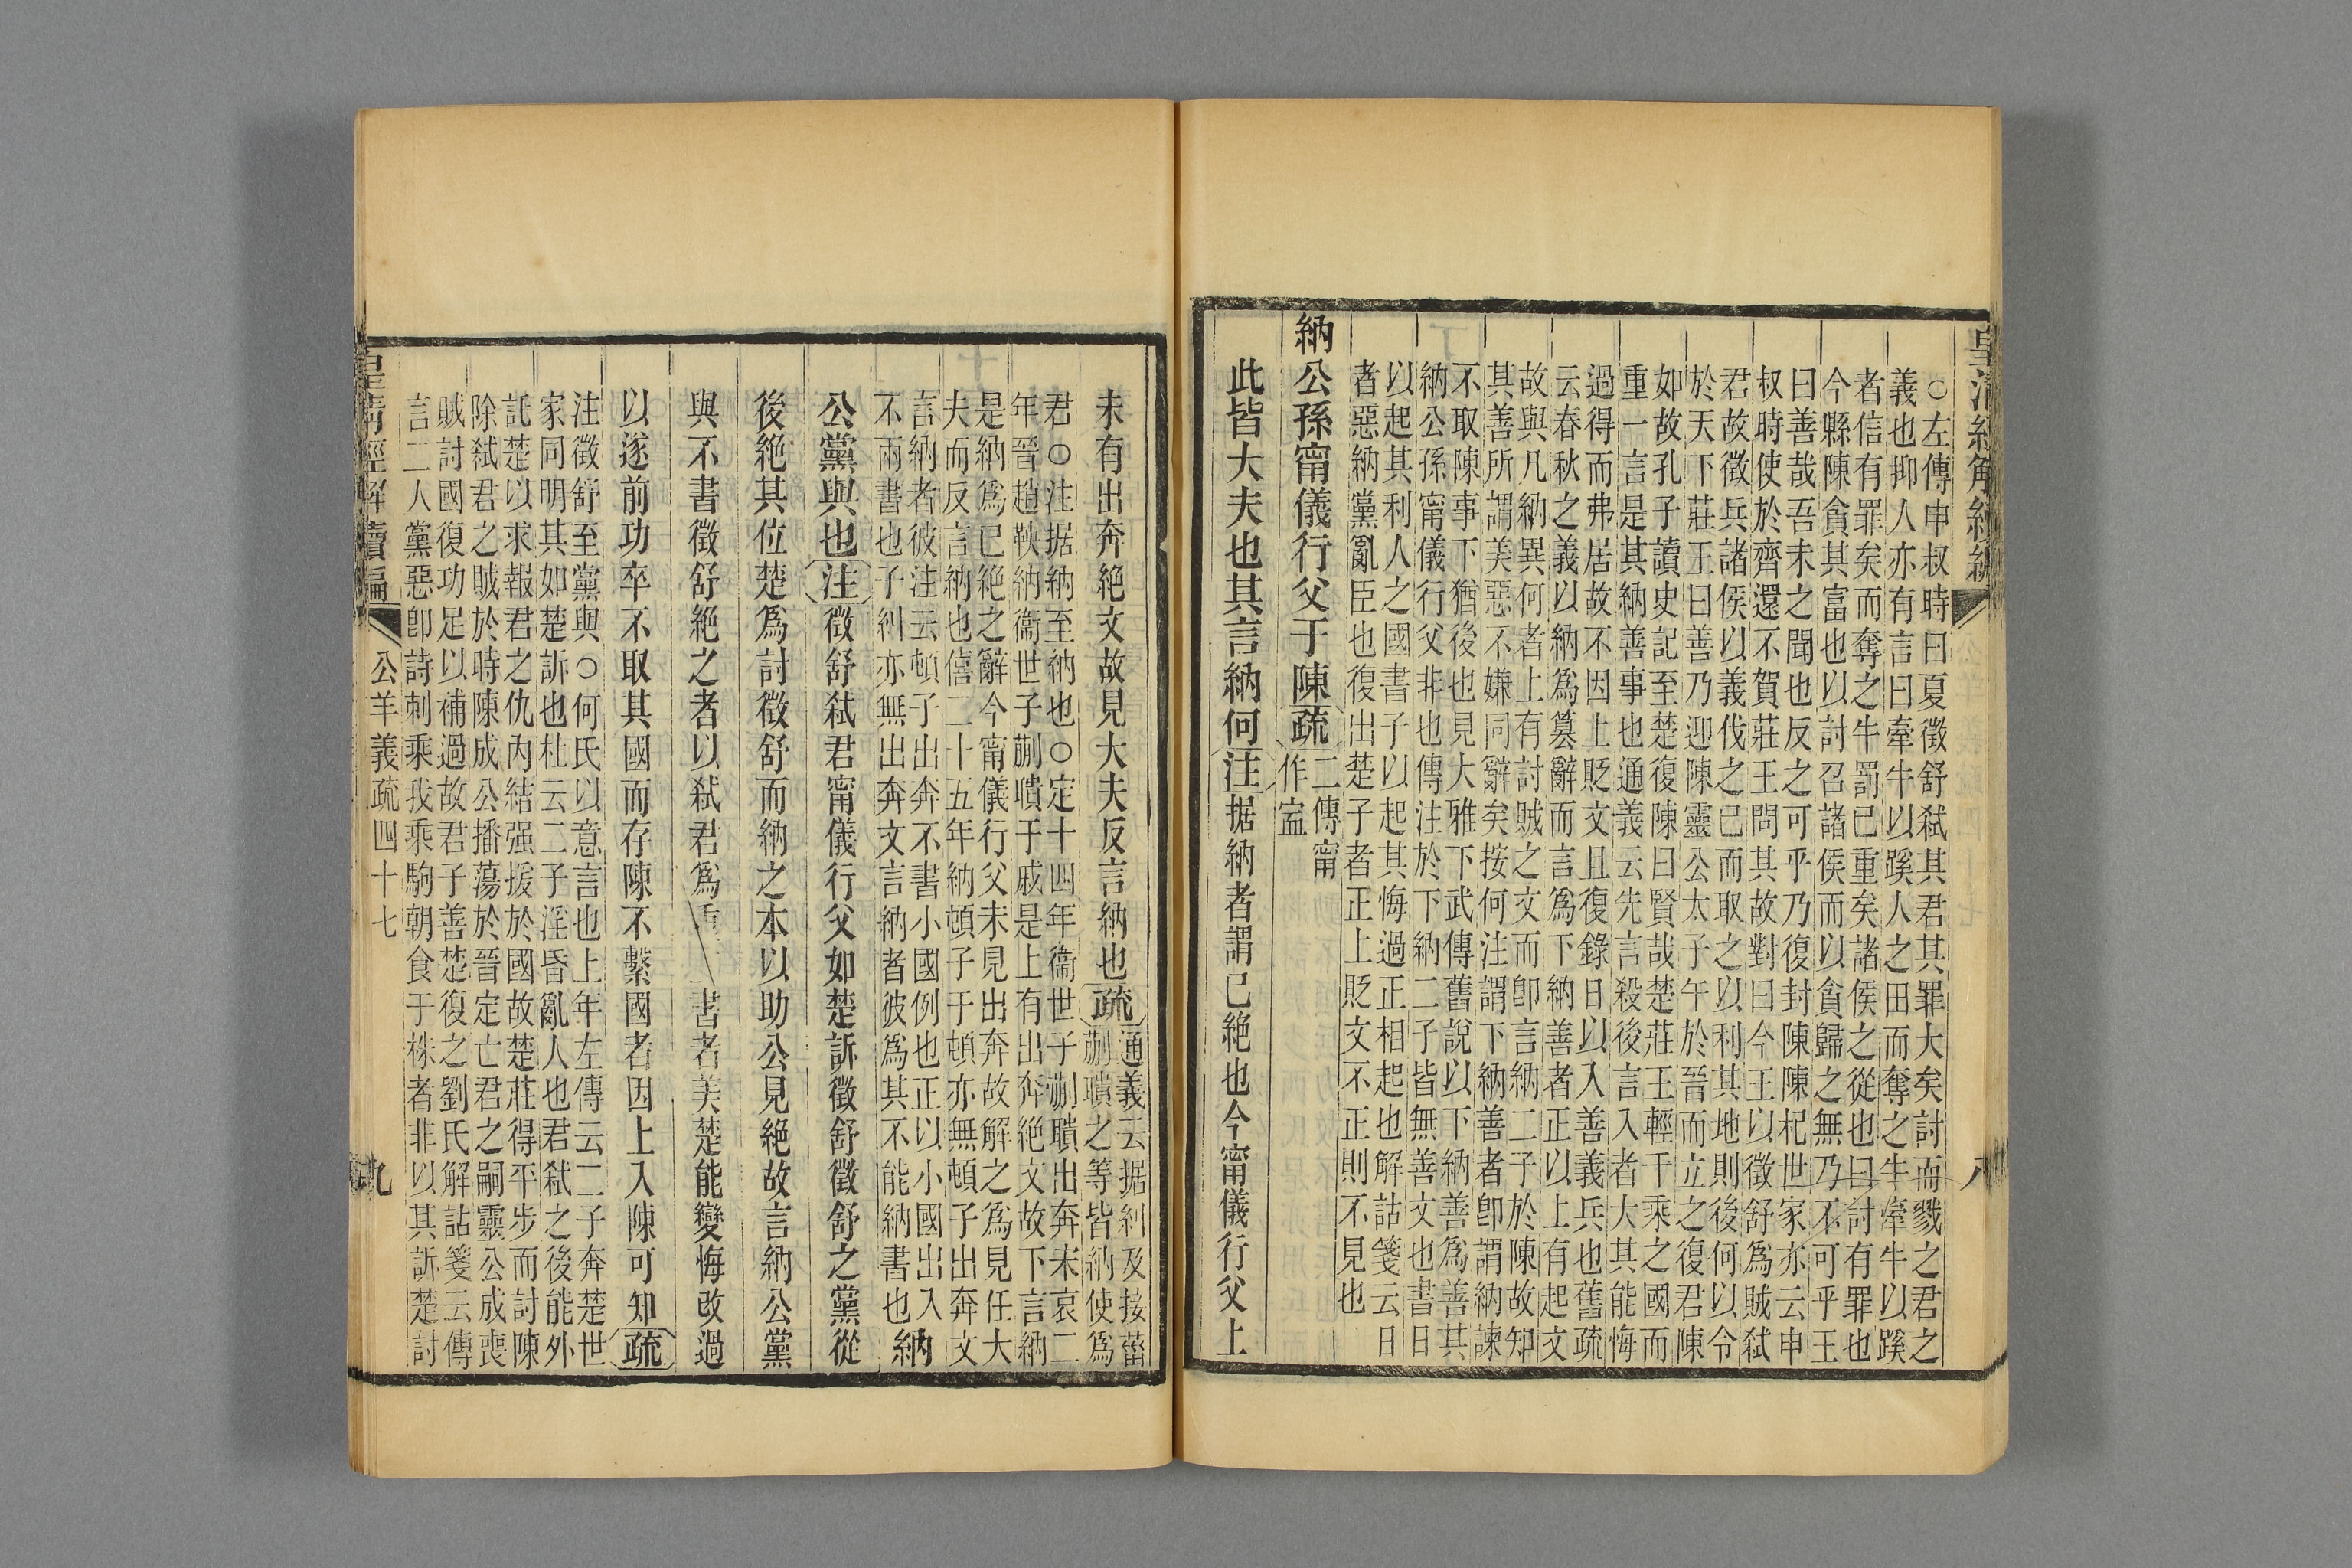 皇清經解續編
八
○左傳申叔時曰夏徵舒弒其君其罪大矣討而戮之君之
義也抑人亦有言曰牽牛以蹊人之田而奪之牛牽牛以蹊
者信有罪矣而奪之牛罰已重矣諸侯之從也曰討有罪也
今縣陳貪其富也以討召諸侯而以貪歸之無乃不可乎王
曰善哉吾未之聞也反之可乎乃復封陳陳杞世家亦云申
叔時使於齊還不賀莊王問其故對曰今王以徵舒爲賊弒
君故徵兵諸侯以義伐之已而取之以利其地則後何以令
於天下莊王曰善乃迎陳靈公太子午於晉而立之復君陳
如故孔子讀史記至楚復陳曰賢哉楚莊王輕千乘之國而
重一言是其納善事也通義云先言殺後言入者大其能悔
過得而弗居故不因上貶文且復錄日以入善義兵也舊疏
云春秋之義以納爲簒辭而言爲下納善者正以上有起文
故與凡納異何者上有討賊之文而卽言納二子於陳故知
其善所謂美惡不嫌同辭矣按何注謂下納善者卽謂納諫
不取陳事下猶後也見大雅下武傳舊說以下納善爲善其
納公孫甯儀行父非也傳注於下納二子皆無善文也書日
以起其利人之國書子以起其悔過正相起也解詁箋云日
者惡納黨亂臣也復出楚子者正上貶文不正則不見也
納公孫甯儀行父于陳疏二傳甯
作寍
此皆大夫也其言納何注据納者謂已絶也今甯儀行父上
未有出奔絶文故見大夫反言納也疏通義云据糾及接菑
蒯聵之等皆納使爲
君○注据納至納也○定十四年衞世子蒯聵出奔宋哀二
年晉趙鞅納衞世子蒯聵于戚是上有出奔絶文故下言納
是納爲已絶之辭今甯儀行父未見出奔故解之爲見任大
夫而反言納也僖二十五年納頓子于頓亦無頓子出奔文
言納者彼注云頓子出奔不書小國例也正以小國出入
不兩書也子糾亦無出奔文言納者彼爲其不能納書也納
公黨與也注徵舒弒君甯儀行父如楚訴徵舒徵舒之黨從
後絶其位楚爲討徵舒而納之本以助公見絶故言納公黨
與不書徵舒絶之者以弒君爲重書者美楚能變悔改過
以遂前功卒不取其國而存陳不繫國者因上入陳可知疏
注徵舒至黨與○何氏以意言也上年左傳云二子奔楚世
家同明其如楚訴也杜云二子淫昏亂人也君弒之後能外
託楚以求報君之仇內結强援於國故楚莊得平步而討陳
除弒君之賊於時陳成公播蕩於晉定亡君之嗣靈公成喪
賊討國復功足以補過故君子善楚復之劉氏解詁箋云傳
言二人黨惡卽詩刺乘我乘駒朝食于株者非以其訴楚討
皇清經解續編
公羊義疏四十七
九